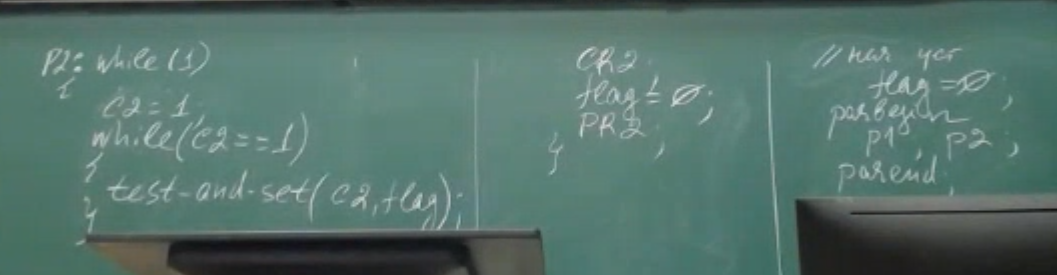 P2: while (1)
{
c2 = 1;
while (c2 == 1)
{
test-and-set( c2, flag);
}
CR2;
flag = 0;
PR2;
}
// нач уст
flag = 0;
parbegin
p1, p2;
parend;